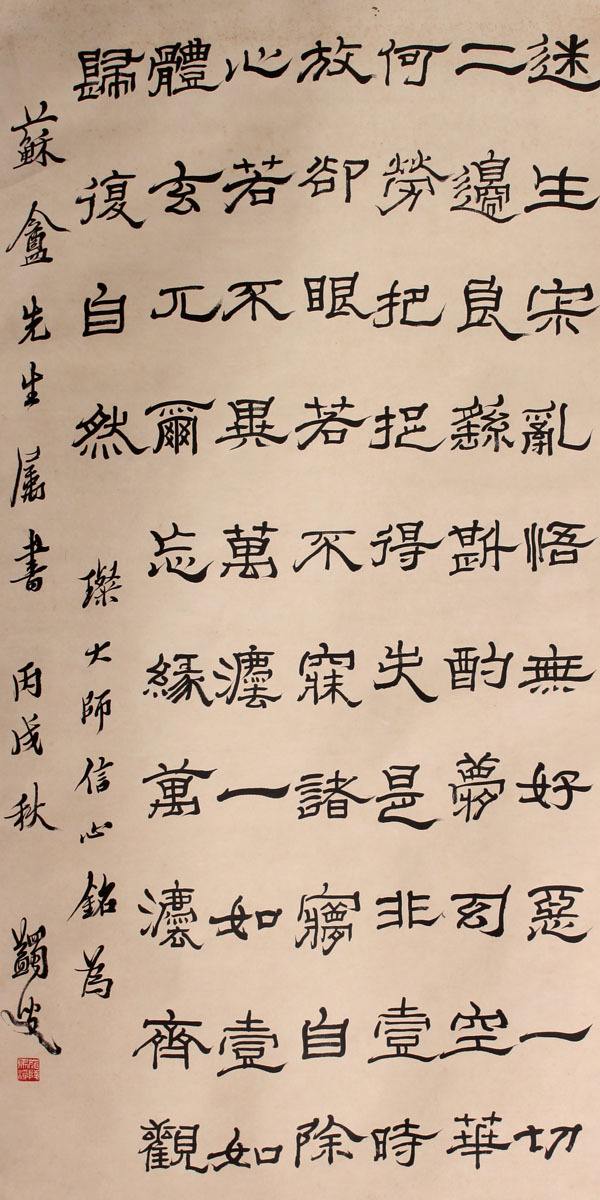 迷生宋亂悟無好惡一切
二邊良繇斟酌夢幻空華
何勞把捉得失是非壹時
放卻眼若不寐諸㝱自除
心若不異萬灋一如壹如
體玄兀爾忘緣萬灋齊觀
歸復自然 璨大師信心銘為
蘇盦先生屬書 丙戌秋 蠲叟